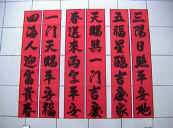 三陽日照平安地
五福星臨吉慶家
天賜與一門吉慶
春送來平安
一門天賜平安福
四海人迎富貴春